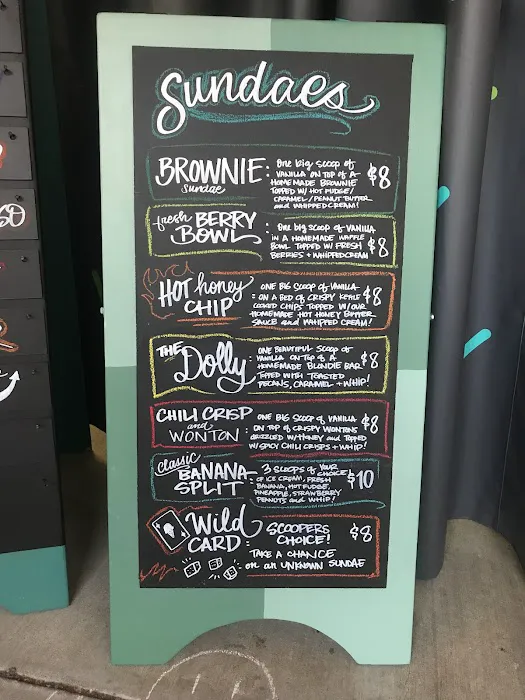 Sundaes
BROWNIE
Sundae
One big scoop of
VANILLA ON TOP OF A
HOMEMADE BROWNIE
TOPPED W/ HOT FUDGE/
CARAMEL/PEANUT BUTTER
and WHIPPED CREAM!
$8
fresh BERRY
BOWL
One big scoop of VANILLA
IN A HOMEMADE WAFFLE
BOWL TOPPED W/ FRESH
BERRIES + WHIPPED CREAM
$8
HOT honey
CHIP
ONE BIG SCOOP OF VANILLA
ON A BED OF CRISPY KETTLE
COOKED CHIPS TOPPED W/OUR
HOMEMADE HOT HONEY BUTTER
SAUCE and WHIPPED CREAM!
$8
THE
Dolly
ONE BEAUTIFUL SCOOP OF
VANILLA ON TOP OF A
HOMEMADE BLONDIE BAR
TOPPED WITH TOASTED
PECANS, CARAMEL + WHIP!
$8
CHILI CRISP
and
WONTON
ONE BIG SCOOP OF VANILLA
ON TOP OF CRISPY WONTONS
DRIZZLED W/HONEY and TOPPED
W/SPICY CHILI CRISPS + WHIP!
$8
classic
BANANA
SPLIT
3 SCOOPS OF YOUR CHOICE
OF ICE CREAM, FRESH
BANANA, HOT FUDGE,
PINEAPPLE, STRAWBERRY
PEANUTS and WHIP!
$10
Wild
CARD
SCOOPERS
CHOICE!
TAKE A CHANCE
on an UNKNOWN SUNDAE
$8